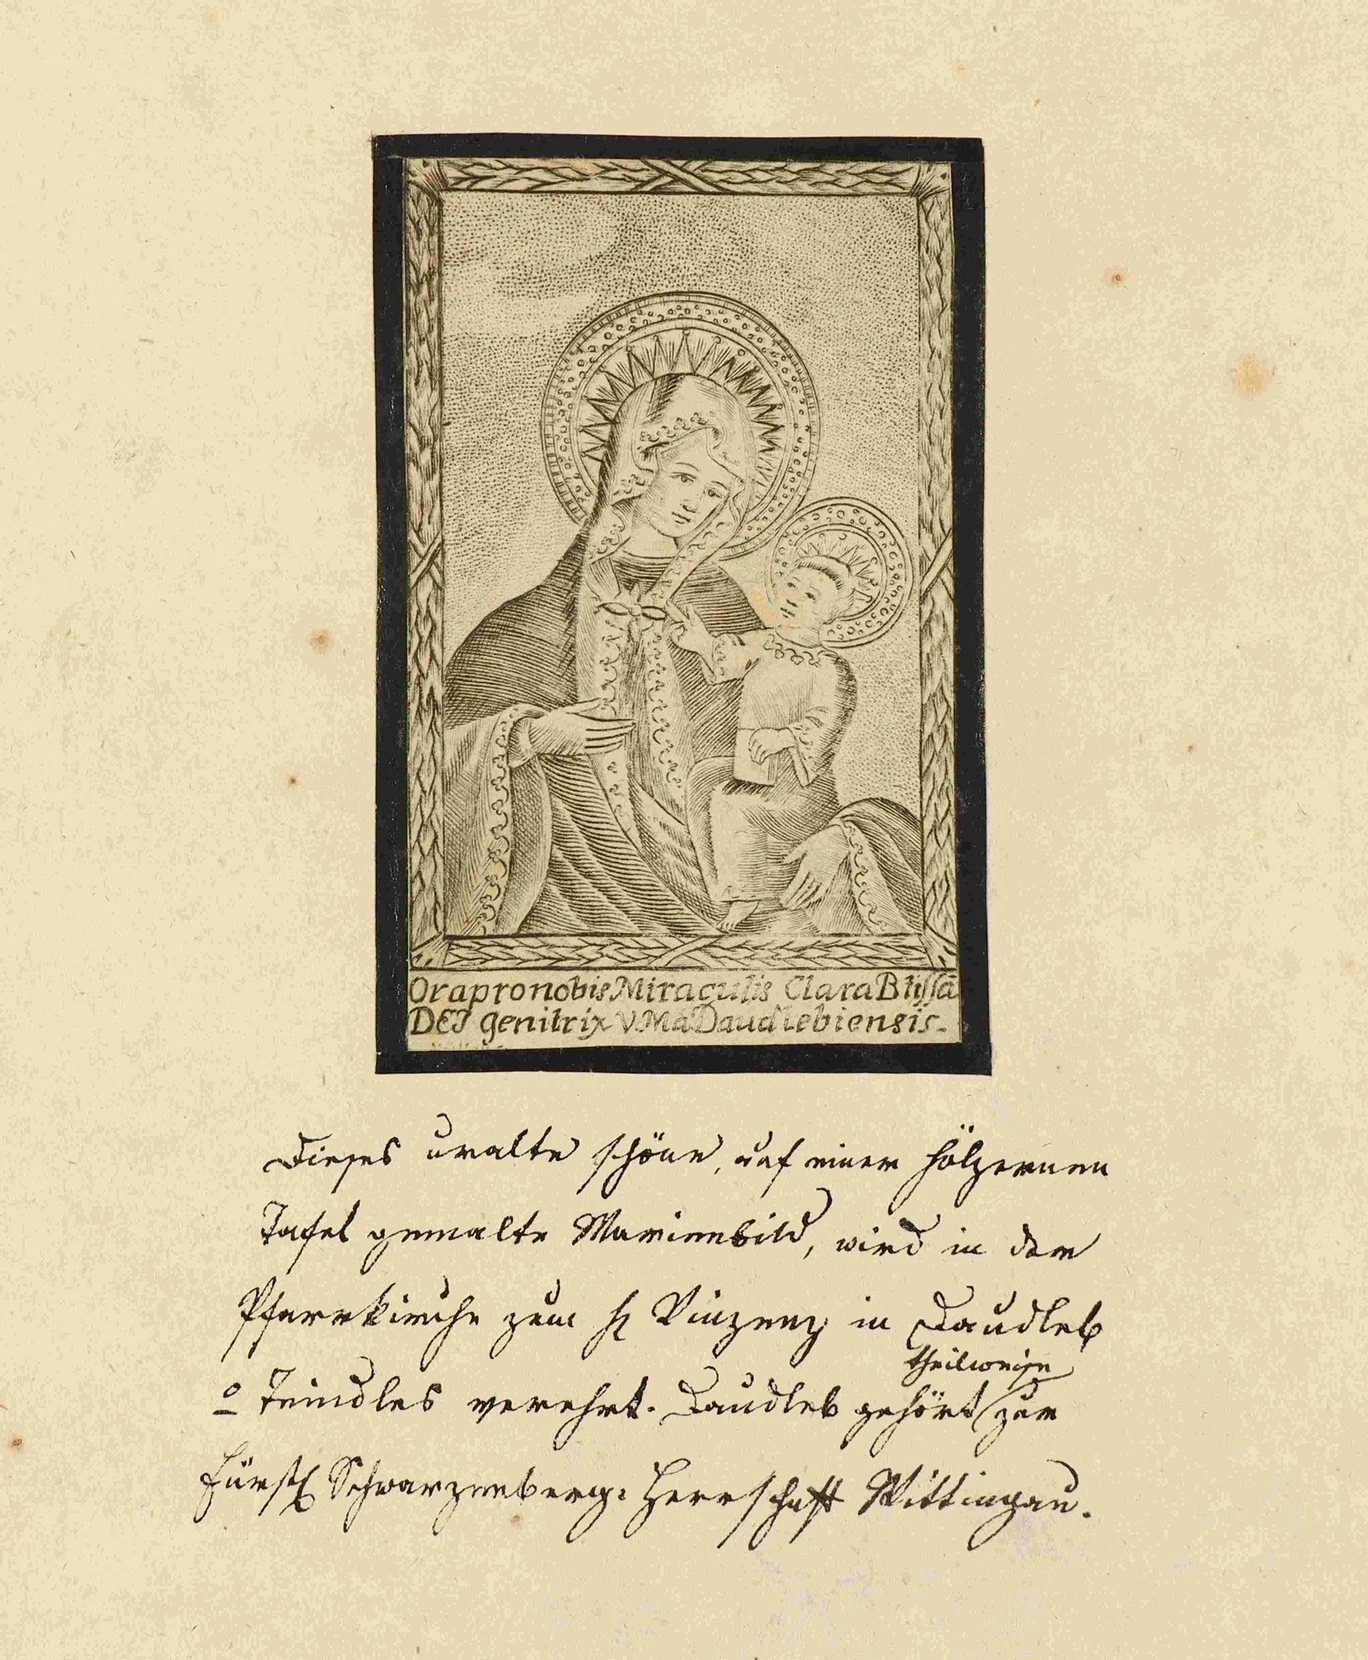 Ora pro nobis Miraculis Clara Btissã
DEI genitrix V Ma Daudlebiensis.
Dieses uralte schöne, auf einer hölzernen
Tafel gemalte Marienbild, wird in der
Pfarrkirche zum hl Vinzenz in Daudleb
theilweise
o Teindles verehrt. Daudleb gehört zur
Fürstl Schwarzenberg: Herrschaft Wittingau.